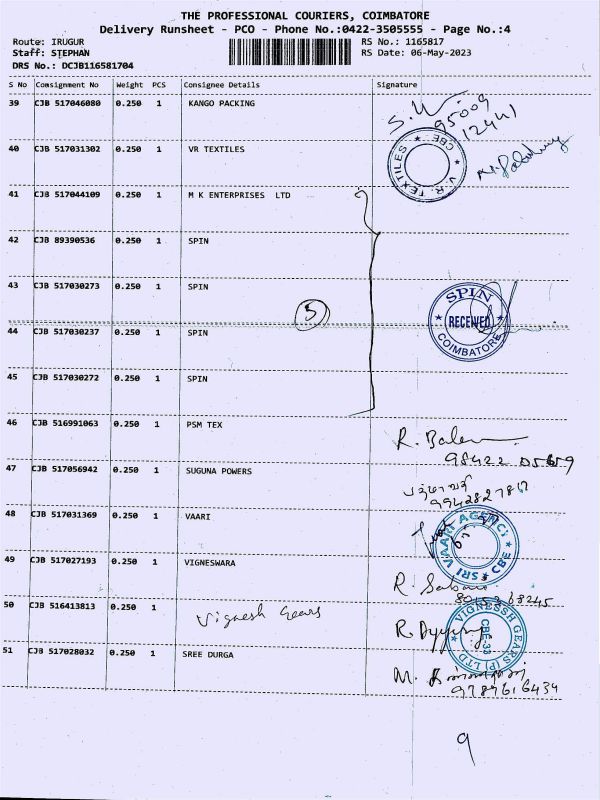 THE PROFESSIONAL COURIERS, COIMBATORE
Delivery Runsheet - PCO - Phone No.:0422-3505555 - Page No.:4
Route: IRUGUR RS No.: 1165817
Staff: STEPHAN RS Date: 06-May-2023
DRS No.: DCJB116581704
S No Consignment No Weight PCS Consignee Details Signature
39 CJB 517046080 0.250 1 KANGO PACKING
95009
12441
40 CJB 517031302 0.250 1 VR TEXTILES
V.R. TEXTILES CBE
41 CJB 517044109 0.250 1 M K ENTERPRISES LTD
42 CJB 89390536 0.250 1 SPIN
43 CJB 517030273 0.250 1 SPIN
5
SPIN
RECEIVED
COIMBATORE
44 CJB 517030237 0.250 1 SPIN
45 CJB 517030272 0.250 1 SPIN
46 CJB 516991063 0.250 1 PSM TEX
R.
98422 05659
47 CJB 517056942 0.250 1 SUGUNA POWERS
9942827817
48 CJB 517031369 0.250 1 VAARI
SRI VAARI AGENCY CBE
49 CJB 517027193 0.250 1 VIGNESWARA
R.
50 CJB 516413813 0.250 1 Vignesh Gears
R.
VIGNESSH GEARS (P) LTD
CBE-33
51 CJB 517028032 0.250 1 SREE DURGA
M.
9787616434
9